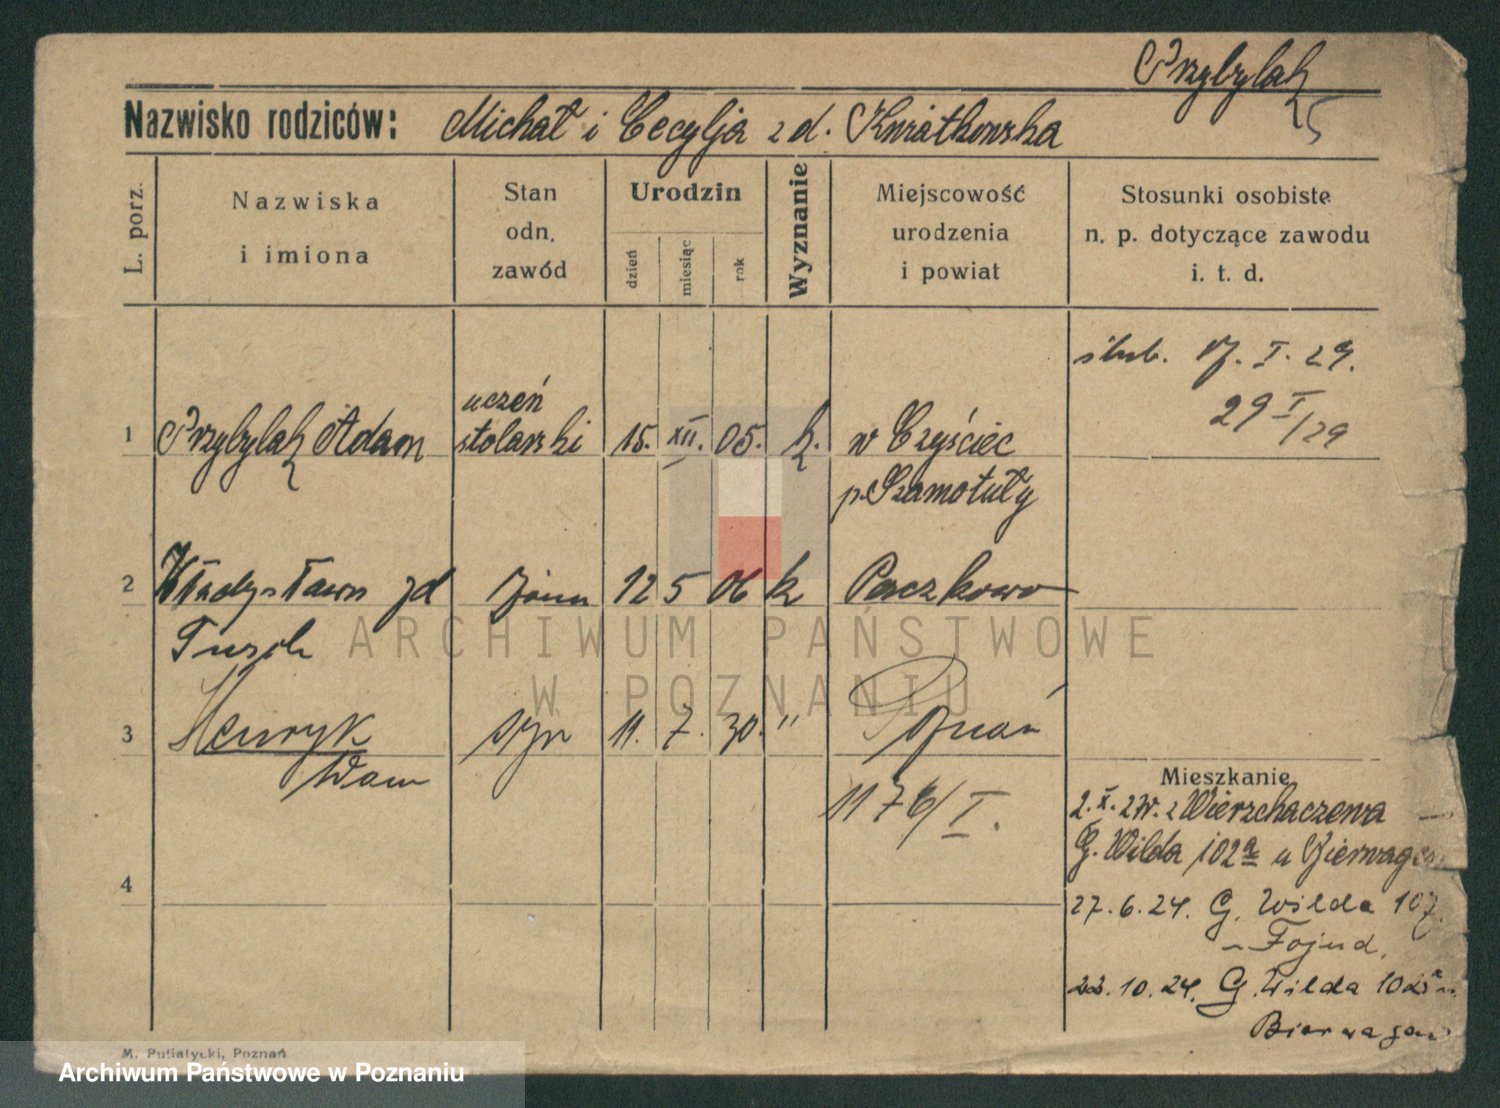 Przybylak
Nazwisko rodziców: Michał i Cecylja z d. Kwiatkowska
5
L. porz.
Nazwiska
i imiona
Stan
odn.
zawód
Urodzin
dzień
miesiąc
rok
Wyznanie
Miejscowość
urodzenia
i powiat
Stosunki osobiste
n. p. dotyczące zawodu
i. t. d.
ślub. 17. I. 29.
29 I/29
1 Przybylak Adam uczeń stolarski 15. XII. 05. k. w Czyściec
p. Szamotuły
2 Władysława zd żona 12 5 06 k Paczkowo
3 Henryk syn 11. 7. 30. " Poznań
Adam
1176/I.
4
Mieszkanie
2. X. 24r. z Wierzchaczewa
G. Wilda 102a u
27. 6. 24. G. Wilda 107
Fojud,
22. 10. 24. G. Wilda
M. Putiatycki, Poznań
ARCHIWUM PAŃSTWOWE
W POZNANIU
Archiwum Państwowe w Poznaniu